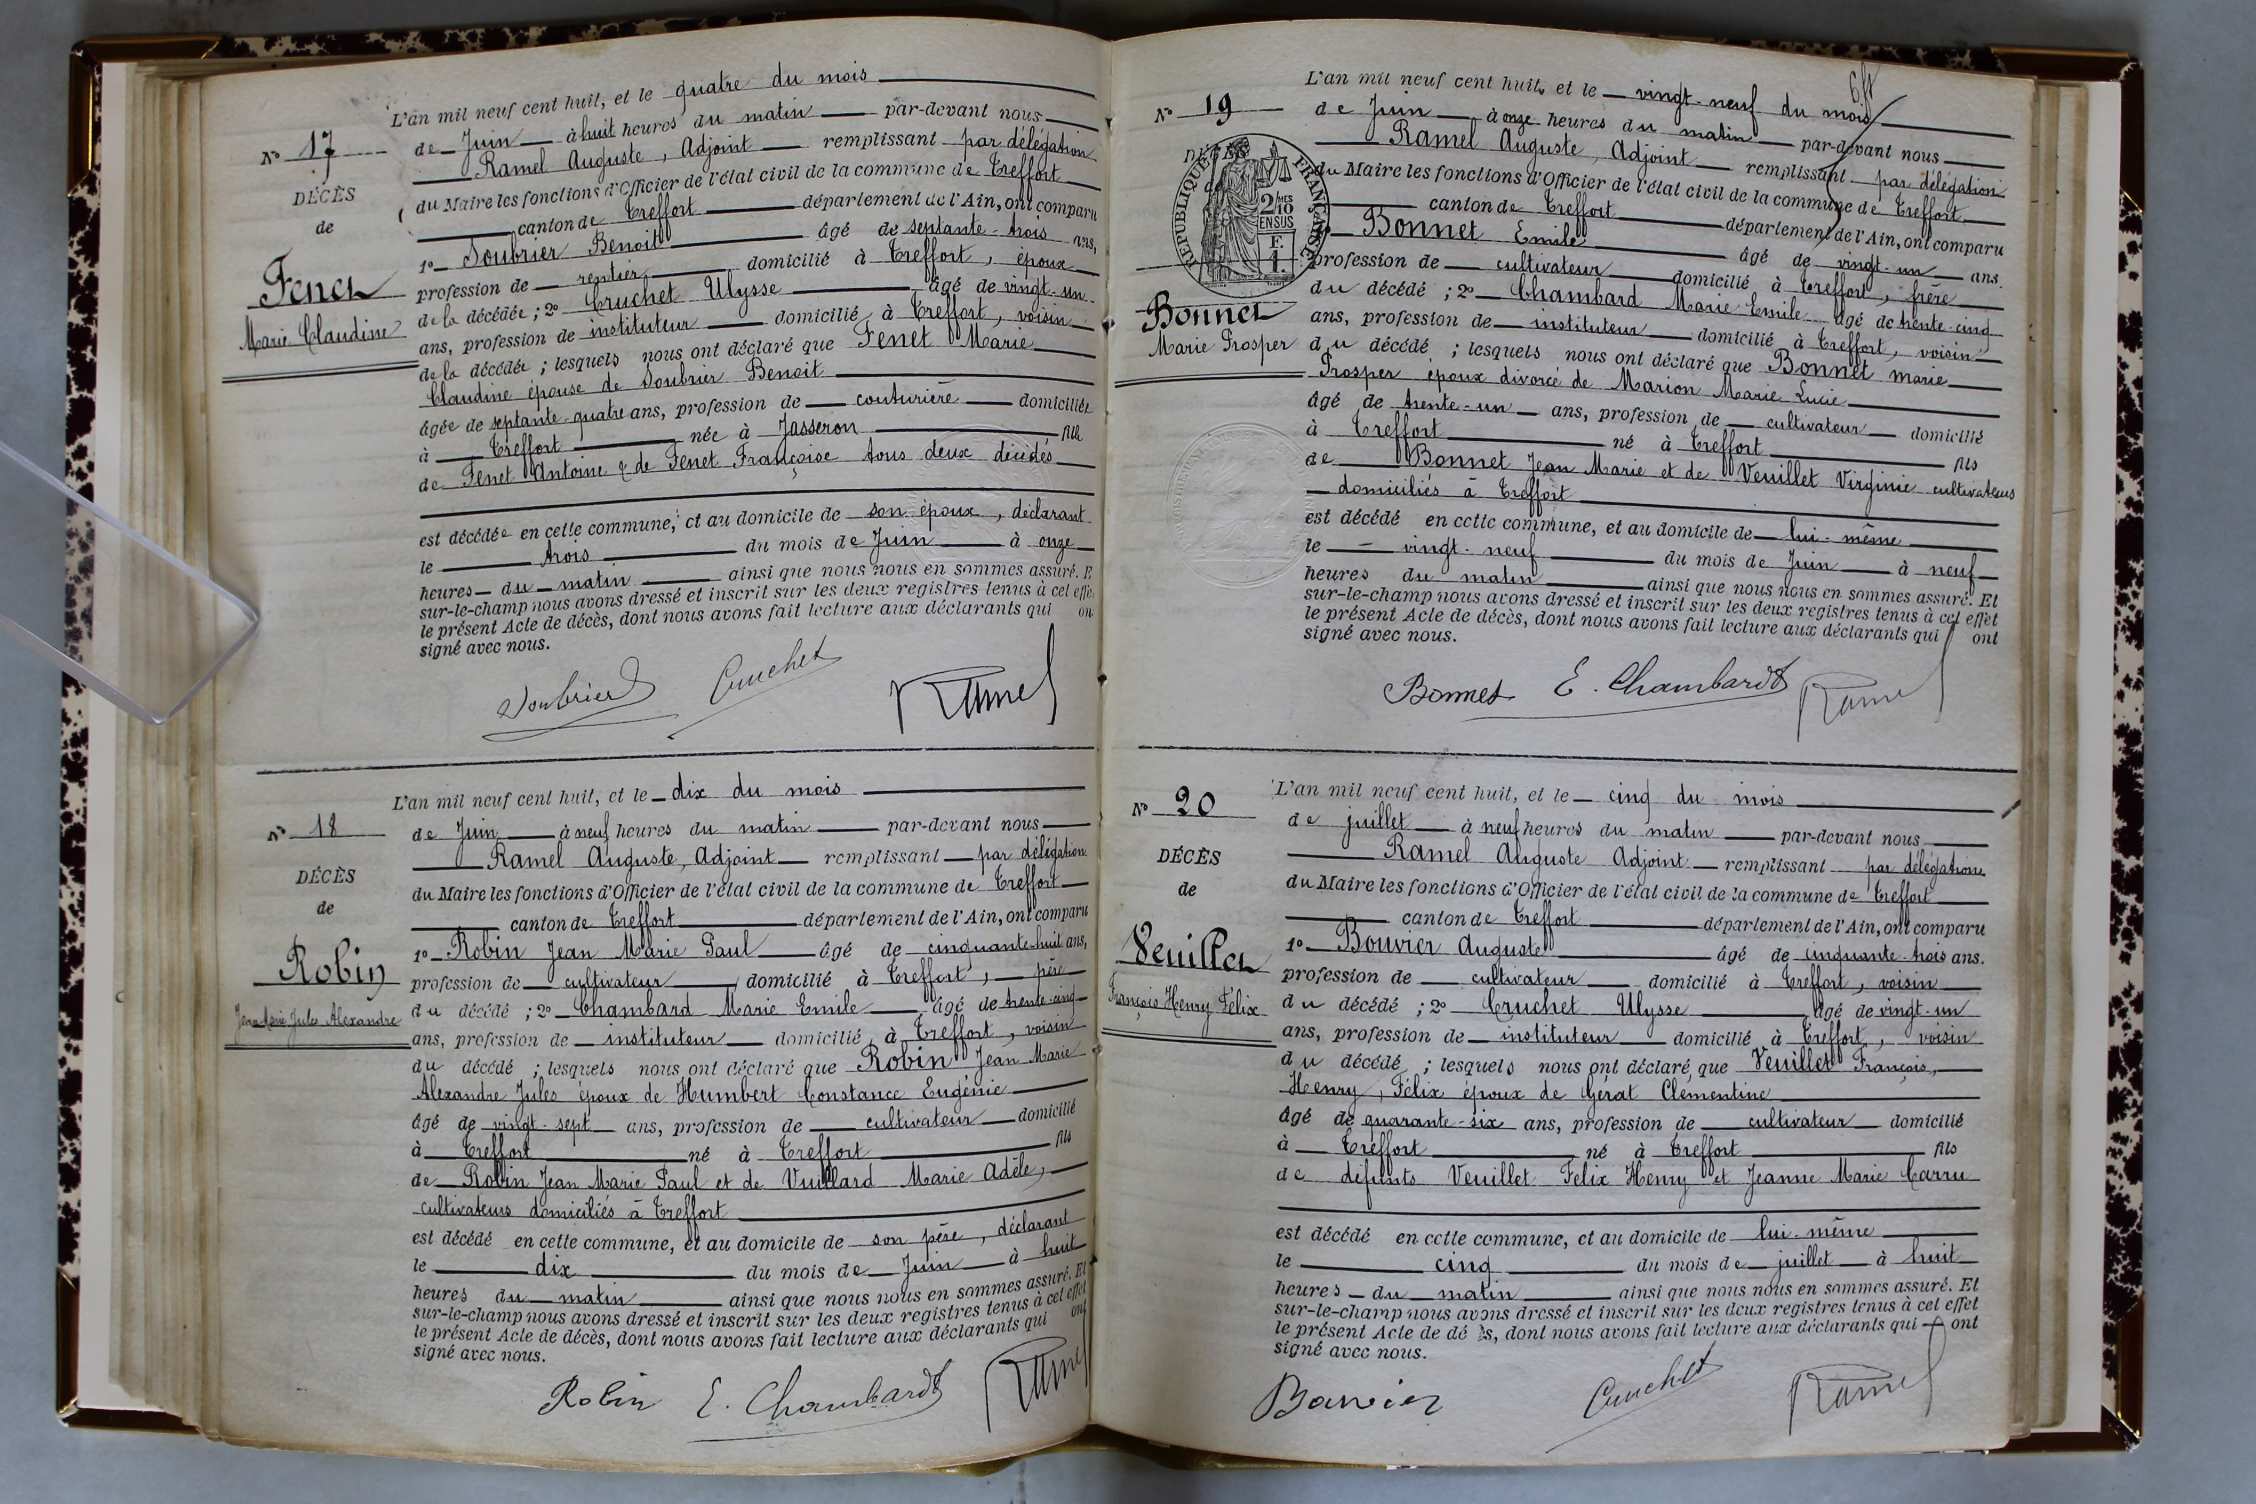 L'an mil neuf cent huit, et le quatre du mois
No 17
de Juin à huit heures du matin par-devant nous
Ramel Auguste, Adjoint remplissant par délégation
DÉCÈS
du Maire les fonctions d'Officier de l'état civil de la commune de Treffort
de
canton de Treffort département de l'Ain, ont comparu
1o Soubrier Benoit âgé de septante-trois ans,
Fenet
profession de rentier domicilié à Treffort, époux
Marie Claudine
de la décédée ; 2o Cruchet Ulysse âgé de vingt-un
ans, profession de instituteur domicilié à Treffort, voisin
de la décédée ; lesquels nous ont déclaré que Fenet Marie
Claudine épouse de Soubrier Benoit
âgée de septante-quatre ans, profession de couturière domiciliée
à Treffort née à Jasseron fille
de Fenet Antoine & de Fenet Françoise tous deux décédés
est décédée en cette commune, et au domicile de son époux, déclarant
le trois du mois de Juin à onze
heures du matin ainsi que nous nous en sommes assuré. E
sur-le-champ nous avons dressé et inscrit sur les deux registres tenus à cet effe
le présent Acte de décès, dont nous avons fait lecture aux déclarants qui on
signé avec nous.
Soubrier Cruchet Ramel
L'an mil neuf cent huit, et le dix du mois
No 18
de Juin à neuf heures du matin par-devant nous
Ramel Auguste, Adjoint remplissant par délégation
DÉCÈS
du Maire les fonctions d'Officier de l'état civil de la commune de Treffort
de
canton de Treffort département de l'Ain, ont comparu
1o Robin Jean Marie Paul âgé de cinquante-huit ans,
Robin
profession de cultivateur domicilié à Treffort, père
Jean Marie Jules Alexandre
du décédé ; 2o Chambard Marie Emile âgé de trente-cinq
ans, profession de instituteur domicilié à Treffort, voisin
du décédé ; lesquels nous ont déclaré que Robin Jean Marie
Alexandre Jules époux de Humbert Constance Eugénie
âgé de vingt-sept ans, profession de cultivateur domicilié
à Treffort né à Treffort fils
de Robin Jean Marie Paul et de Vuillard Marie Adèle,
cultivateurs domiciliés à Treffort
est décédé en cette commune, et au domicile de son père, déclarant
le dix du mois de Juin à huit
heures du matin ainsi que nous nous en sommes assuré. Et
sur-le-champ nous avons dressé et inscrit sur les deux registres tenus à cet effet
le présent Acte de décès, dont nous avons fait lecture aux déclarants qui ont
signé avec nous.
Robin E. Chambard Ramel
L'an mil neuf cent huit, et le vingt-neuf du mois
No 19
de Juin à onze heures du matin par-devant nous
Ramel Auguste, Adjoint remplissant par délégation
DÉCÈS
de
RÉPUBLIQUE FRANÇAISE
2/10MES
EN SUS
F.
1.
du Maire les fonctions d'Officier de l'état civil de la commune de Treffort
canton de Treffort département de l'Ain, ont comparu
Bonnet Emile âgé de vingt-un ans.
profession de cultivateur domicilié à Treffort, frère
du décédé ; 2o Chambard Marie Emile âgé de trente-cinq
Bonnet
ans, profession de instituteur domicilié à Treffort, voisin
Marie Prosper
du décédé ; lesquels nous ont déclaré que Bonnet marie
Prosper époux divorcé de Marion Marie Lucie
âgé de trente-un ans, profession de cultivateur domicilié
à Treffort né à Treffort fils
de Bonnet Jean Marie et de Veuillet Virginie cultivateurs
domiciliés à Treffort
est décédé en cette commune, et au domicile de lui-même
le vingt-neuf du mois de Juin à neuf
heures du matin ainsi que nous nous en sommes assuré. Et
sur-le-champ nous avons dressé et inscrit sur les deux registres tenus à cet effet
le présent Acte de décès, dont nous avons fait lecture aux déclarants qui ont
signé avec nous.
Bonnet E. Chambard Ramel
L'an mil neuf cent huit, et le cinq du mois
No 20
de juillet à neuf heures du matin par-devant nous
Ramel Auguste Adjoint remplissant par délégation
DÉCÈS
du Maire les fonctions d'Officier de l'état civil de la commune de Treffort
de
canton de Treffort département de l'Ain, ont comparu
1o Bouvier Auguste âgé de cinquante-trois ans.
Veuillet
profession de cultivateur domicilié à Treffort, voisin
François Henry Félix
du décédé ; 2o Cruchet Ulysse âgé de vingt-un
ans, profession de instituteur domicilié à Treffort, voisin
du décédé ; lesquels nous ont déclaré que Veuillet François,
Henry, Félix époux de Gérat Clémentine
âgé de quarante-six ans, profession de cultivateur domicilié
à Treffort né à Treffort fils
de défunts Veuillet Félix Henry et Jeanne Marie Carru
est décédé en cette commune, et au domicile de lui-même
le cinq du mois de juillet à huit
heures du matin ainsi que nous nous en sommes assuré. Et
sur-le-champ nous avons dressé et inscrit sur les deux registres tenus à cet effet
le présent Acte de dé ès, dont nous avons fait lecture aux déclarants qui ont
signé avec nous.
Bouvier Cruchet Ramel